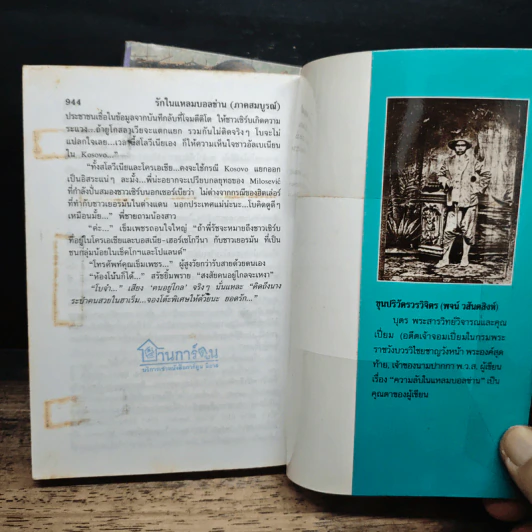 944 รักในแหลมบอลข่าน (ภาคสมบูรณ์)
ประชาชนเชื่อในข้อมูลจากบันทึกลับที่โจมตีติโต ให้ชาวเซิร์บเกิดความ
ระแวง...ถ้ายูโกสลาเวียจะแตกแยก รวมกันไม่ติดจริงๆ โบจะไม่
แปลกใจเลย...เวลานี้สโลวีเนียเอง ก็ให้ความเห็นใจชาวอัลเบเนียน
ใน Kosovo..."
"ทั้งสโลวีเนียและโครเอเชีย...คงจะใช้กรณี Kosovo แยกออก
เป็นอิสระแน่ๆ ละมั้ง...พี่น่ะอยากจะเปรียบกลยุทธของ Milosević
ที่กำลังปั่นสมองชาวเซิร์บนอกเซอร์เบียว่า ไม่ต่างจากกรณีของฮิตเล่อร์
ที่ทำกับชาวเยอรมันในต่างแดน นอกประเทศแม่น่ะนะ...โบคิดดูดีๆ
เหมือนมั้ย..." พี่ชายถามน้องสาว
"ค่ะ..." เข็มเพชรถอนใจใหญ่ "ถ้าพี่รัชจะหมายถึงชาวเซิร์บ
ที่อยู่ในโครเอเชียและบอสเนีย-เฮอร์เซโกวีนา กับชาวเยอรมัน ที่เป็น
ชนกลุ่มน้อยในเช็คโกฯและโปแลนด์..."
"โทรศัพท์คุณเข็มเพชร..." ผู้สูงวัยกว่ารับสายด้วยตนเอง
"ห้องโน้นก็ได้..." สรัชยิ้มพราย "สงสัยคนอยู่ไกลจะเหงา"
"โบจ๋า..." เสียง 'คนอยู่ไกล' จริงๆ นั่นแหละ "คิดถึงนาง
ระบำคนสวยในฮาเร็ม...จองโต๊ะพิเศษให้ด้วยนะ ยอดรัก..."
บ้านการ์ตูน
ขุนปริวัตรวรวิจิตร (พจน์ วสันตสิงห์)
บุตร พระสารวิทย์วิจารณและคุณ
เปี่ยม (อดีตเจ้าจอมเปี่ยมในกรมพระ
ราชวังบวรวิไชยชาญวังหน้า พระองค์สุด
ท้าย, เจ้าของนามปากกา พ.ว.ส. ผู้เขียน
เรื่อง "ความลับในแหลมบอลข่าน" เป็น
คุณตาของผู้เขียน